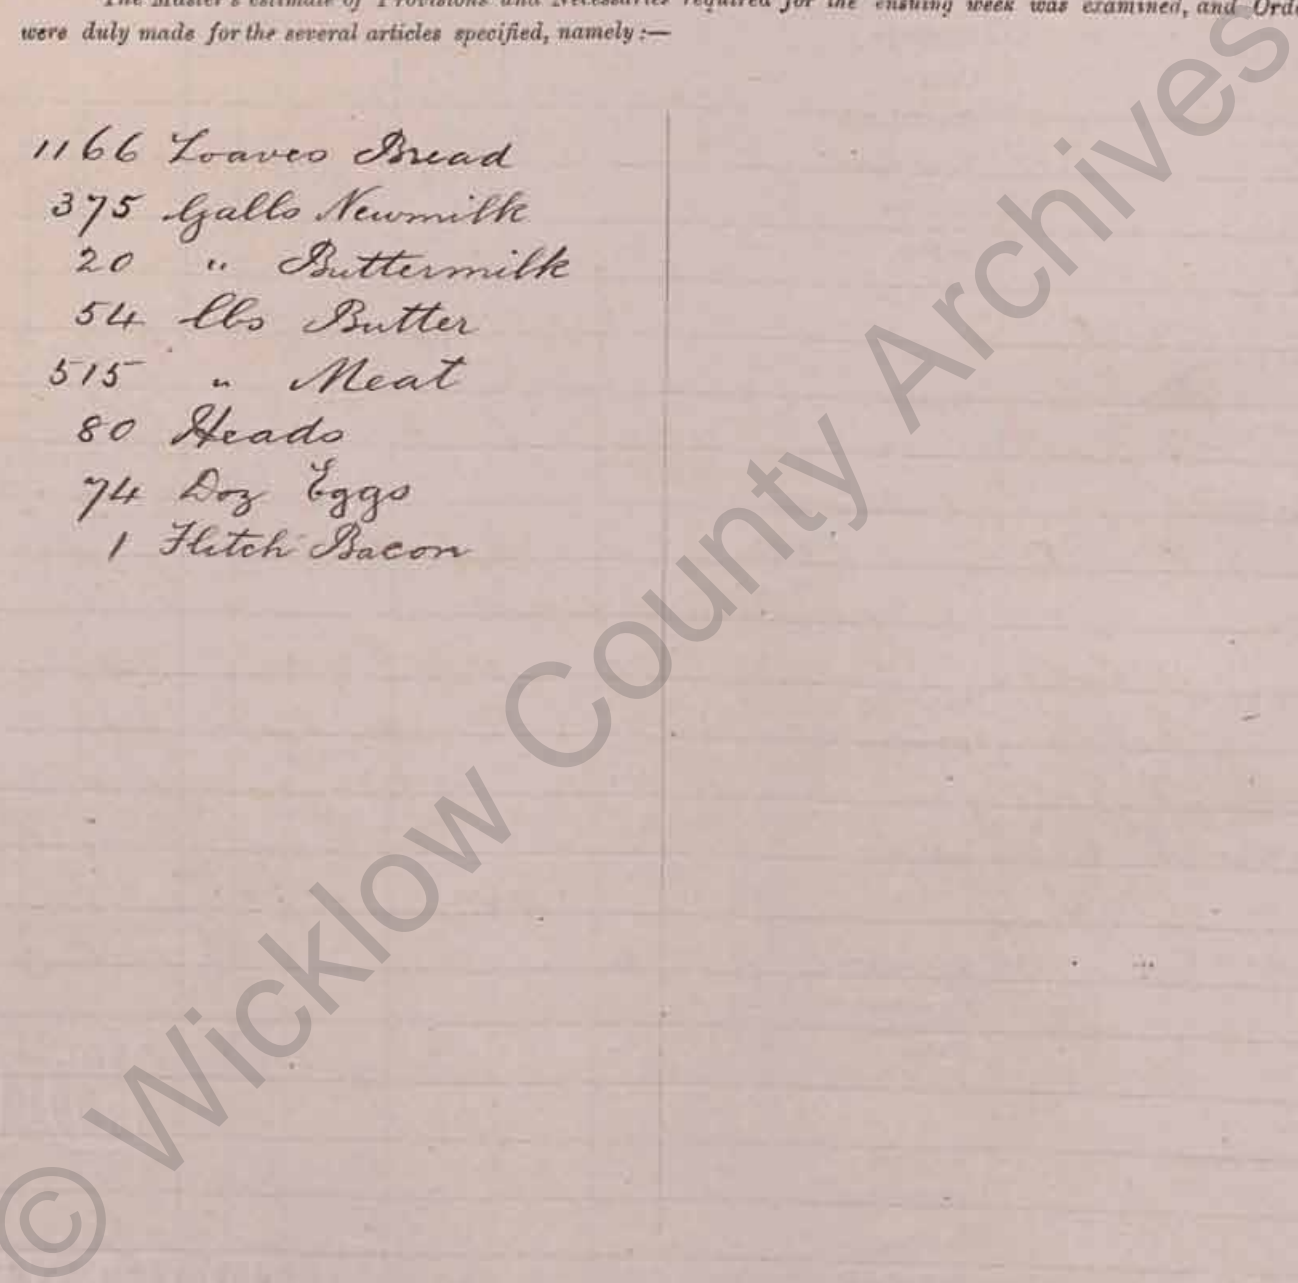 The Master's estimate of Provisions and Necessaries required for the ensuing week was examined, and Orde
were duly made for the several articles specified, namely :—
1166 Loaves Bread
375 Galls Newmilk
20 " Buttermilk
54 lbs Butter
515 " Meat
80 Heads
74 Doz Eggs
1 Flitch Bacon
© Wicklow County Archives